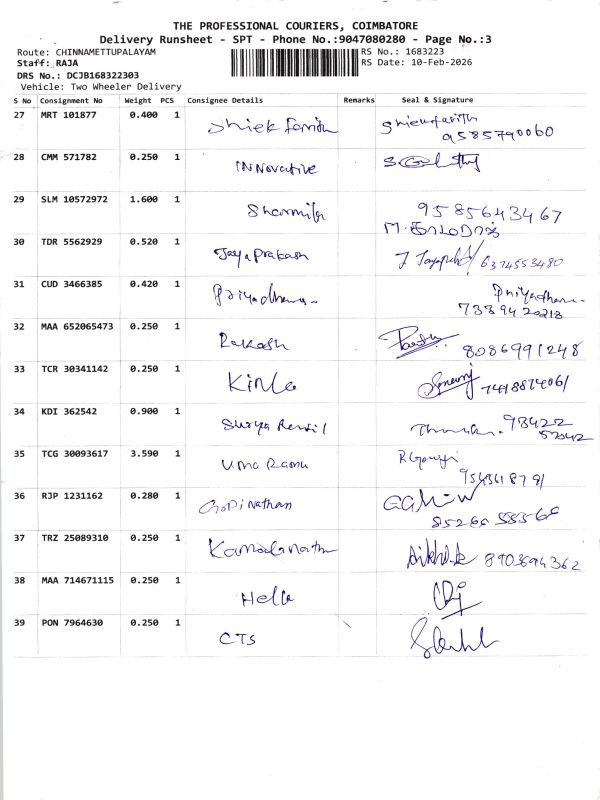 THE PROFESSIONAL COURIERS, COIMBATORE
Delivery Runsheet - SPT - Phone No.:9047080280 - Page No.:3
Route: CHINNAMETTUPALAYAM RS No.: 1683223
Staff: RAJA RS Date: 10-Feb-2026
DRS No.: DCJB168322303
Vehicle: Two Wheeler Delivery
S No Consignment No Weight PCS Consignee Details Remarks Seal & Signature
27 MRT 101877 0.400 1
9585790060
28 CMM 571782 0.250 1 INNovative
29 SLM 10572972 1.600 1 Sharmila 9585643467
30 TDR 5562929 0.520 1 Jaya prakash 6374553480
31 CUD 3466385 0.420 1 Priyadharu
32 MAA 652065473 0.250 1 Rakash 8086991248
33 TCR 30341142 0.250 1
34 KDI 362542 0.900 1 Surya
35 TCG 30093617 3.590 1 Uma Ramu
36 RJP 1231162 0.280 1 GoPinathan
37 TRZ 25089310 0.250 1 8903694362
38 MAA 714671115 0.250 1 Hella
39 PON 7964630 0.250 1 CTS